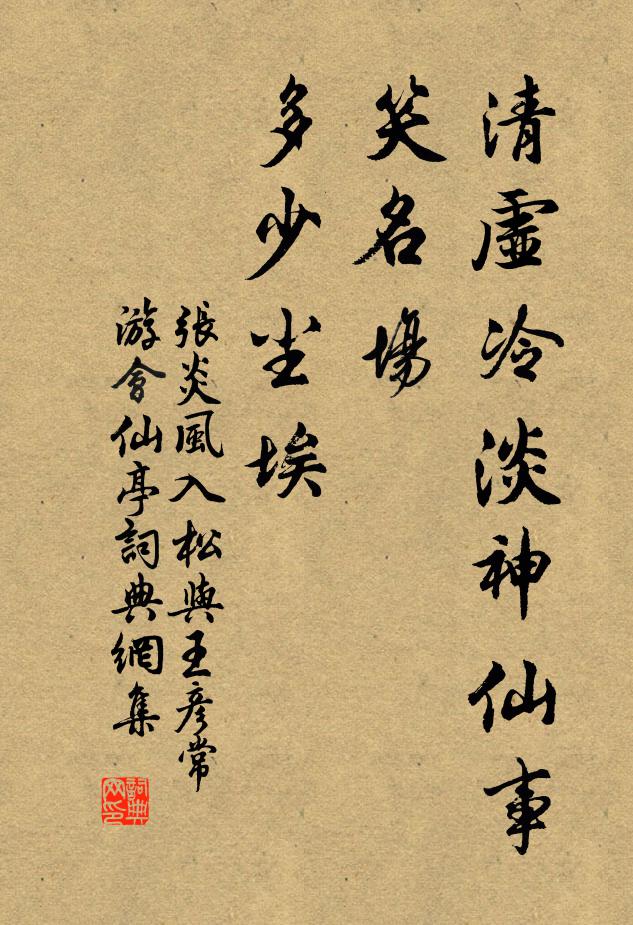 清虛冷淡神仙事
笑名場
多少尘埃
張炎風入松與王彥常
游會仙亭詞典網集
詞典
网印